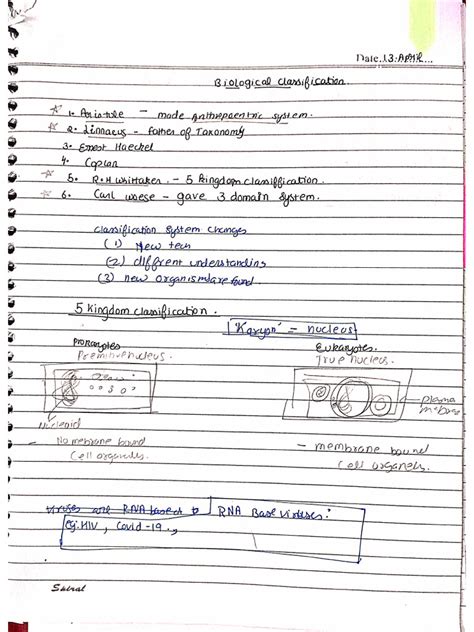 Date.13.APRIL...
Biological classification.
☆ 1. Aristole - made Anthropocentric system.
☆ 2. Linnaeus - father of Taxonomy
3. Ernest Haeckel
4.
☆ 5. R.H Whittaker. - 5 kingdom classiffication.
☆ 6. Carl woese - gave 3 domain system.
classification system changes
(1) New tech
(2) different understanding
(3) new organism are found.
5 Kingdom classification.
'Karyon' = nucleus
Prokaryotes
Eukaryotes
nucleus.
True nucleus.
plasma
Nucleoid
- No membrane bound
cell organelles.
- membrane bound
cell organels.
Viruses are RNA based to
RNA Base Viruses:
eg. HIV, Covid-19.,
Spiral